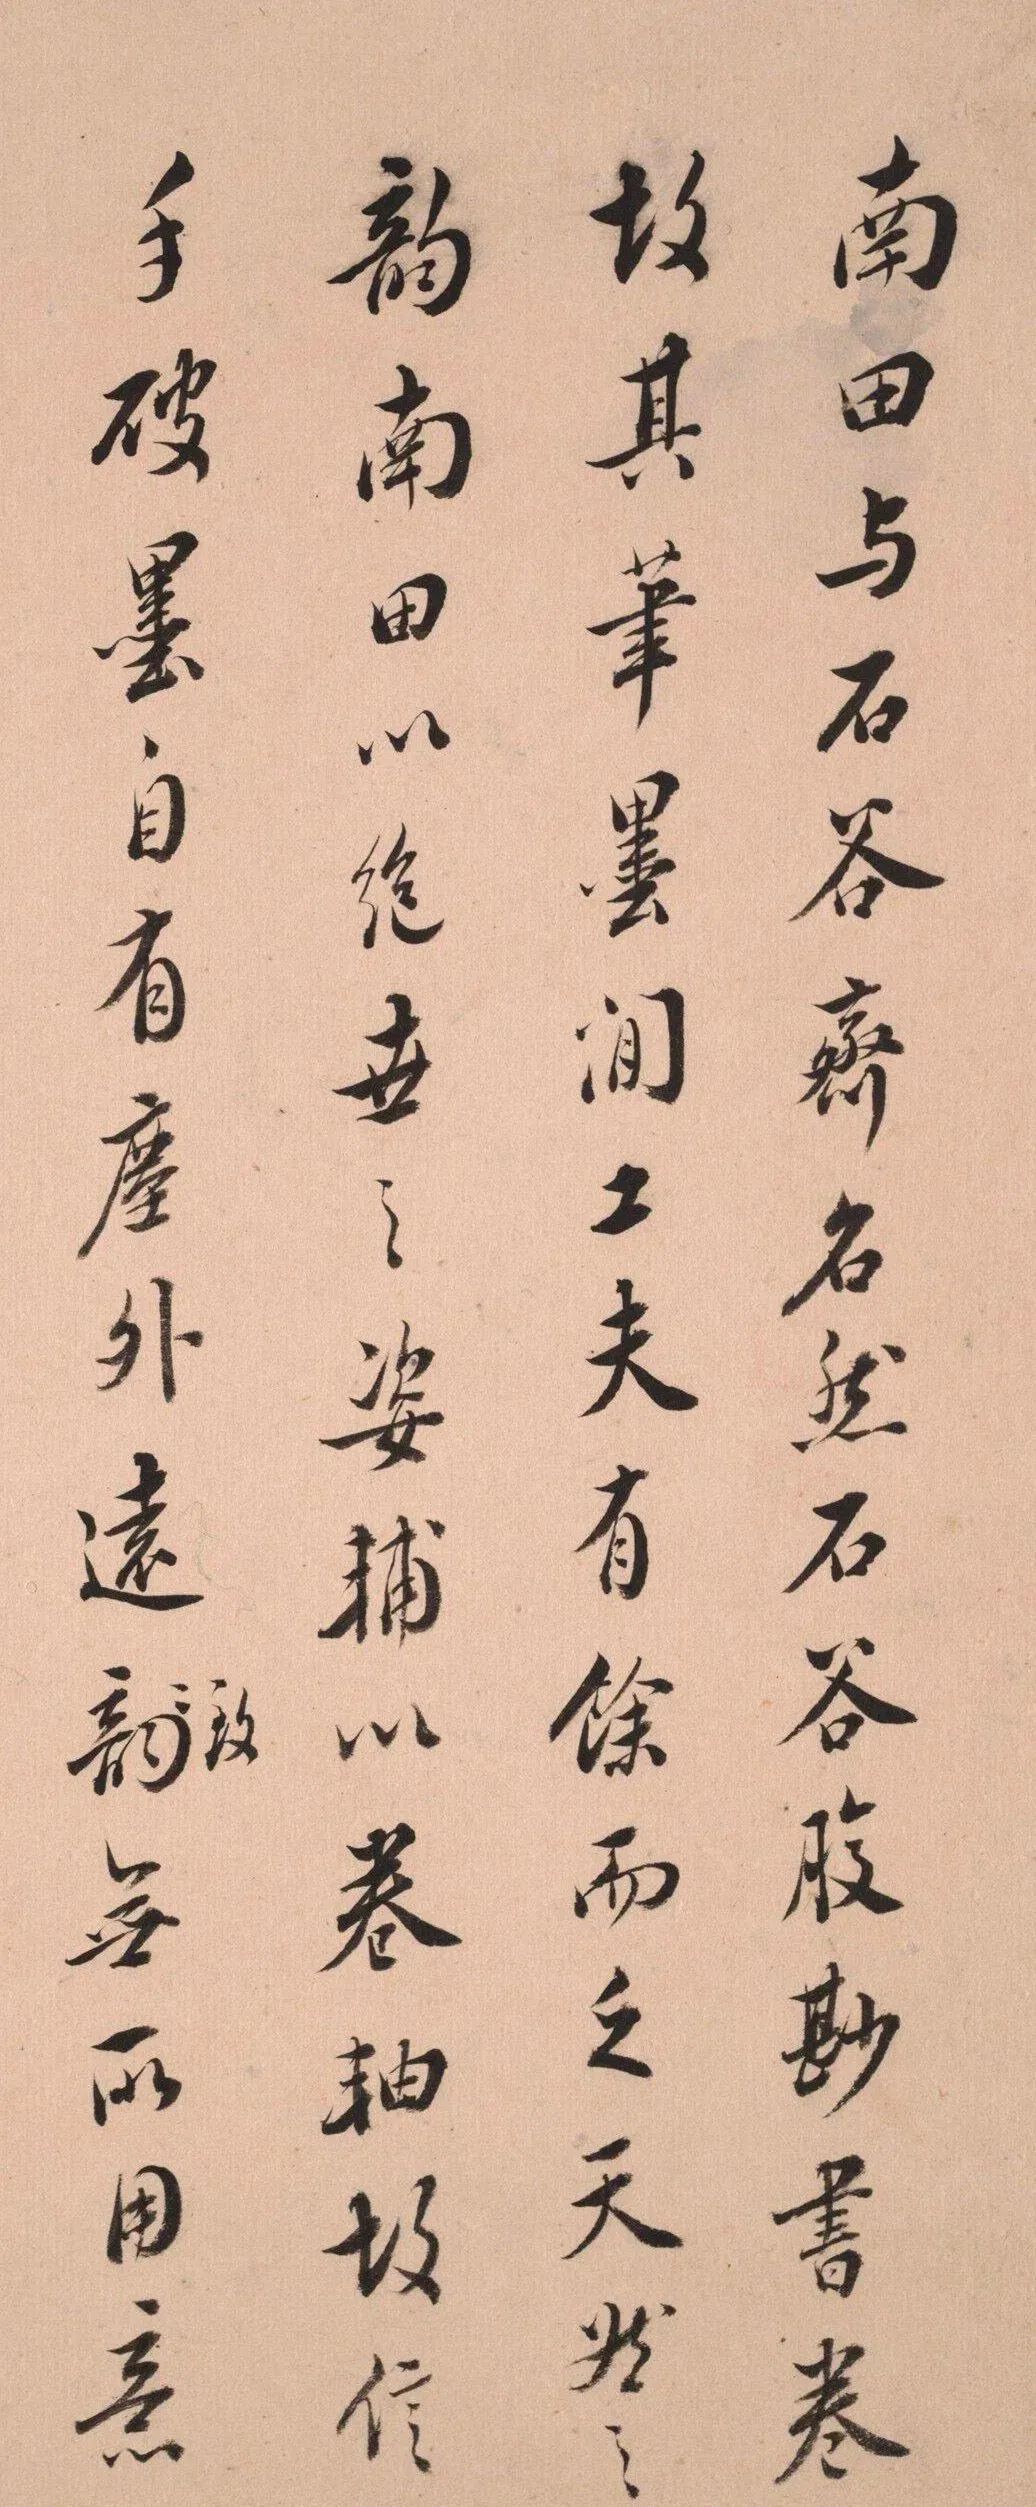 南田与石谷齊名然石谷腹尠書卷
故其筆墨间工夫有餘而乏天然之
韵南田以絶世之姿補以卷軸故信
手破墨自有塵外遠韵致無所用意